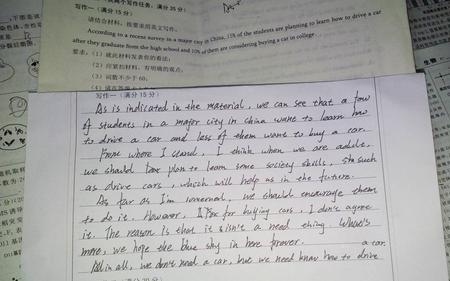 写作一 (满分 15 分)
请结合材料,按要求用英文写作。
According to a recent survey in a major city in China, 15% of the students are planning to learn how to drive a car
after they graduate from the high school and 10% of them are considering buying a car in college.
要求: (1) 就此材料发表你的看法;
(2) 应紧扣材料, 有明确的观点。
(3) 词数不少于 60。
写作一 (满分 15 分)
As is indicated in the material, we can see that a few
of students in a major city in china want to learn how
to drive a car and less of them want to buy a car.
From where I stand, I think when we are adult,
we should plan to learn some society skills, such
as drive cars, which will help us in the future.
As far as I'm concerned, we should encourage them
to do it. However, As for buying cars, I don't agree
it. The reason is that it isn't a need thing. What's
more, we hope the blue sky in here forever.
All in all, we don't need a car, but we need know how to drive
a car.